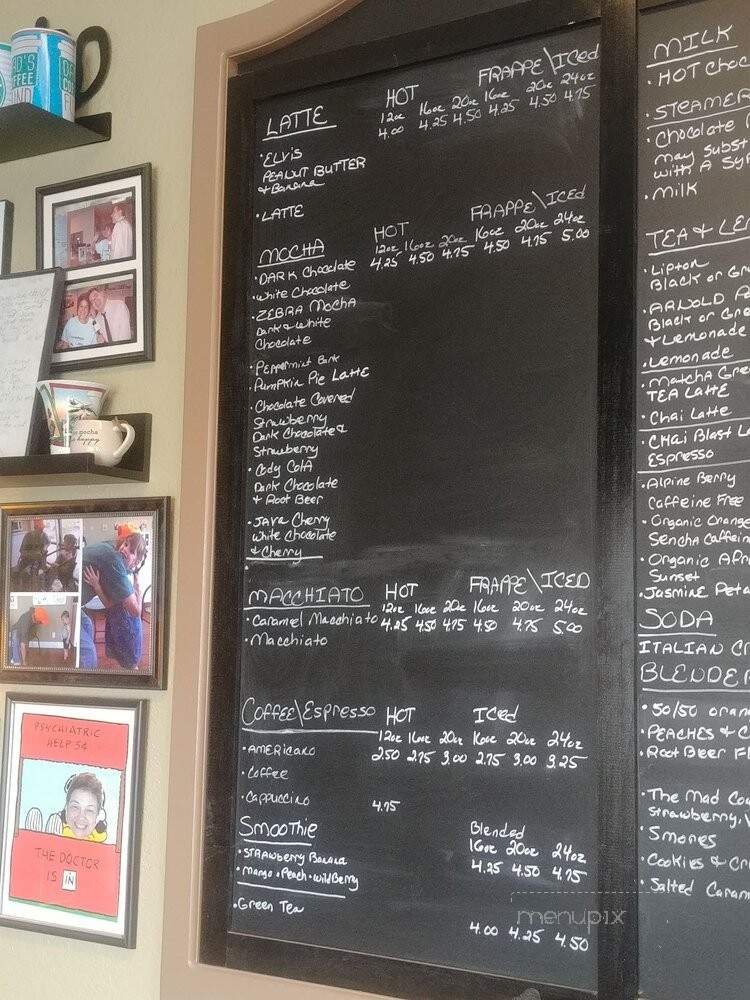 LATTE
HOT
FRAPPE\Iced
12oz 16oz 20oz 16oz 20oz 24oz
4.00 4.25 4.50 4.25 4.50 4.75
•ELVIS
PEANUT BUTTER
& Banana
•LATTE
MOCHA
HOT
FRAPPE\ICED
12oz 16oz 20oz 16oz 20oz 24oz
4.25 4.50 4.75 4.50 4.75 5.00
•DARK Chocolate
•White Chocolate
•ZEBRA MOCHA
Dark & White
Chocolate
•Peppermint Bark
•Pumpkin Pie Latte
•Chocolate Covered
Strawberry
Dark Chocolate &
Strawberry
•Cody Cola
Dark Chocolate
& Root Beer
•JAVA Cherry
White Chocolate
& Cherry
MACCHIATO
HOT
FRAPPE\ICED
12oz 16oz 20oz 16oz 20oz 24oz
•Caramel Macchiato 4.25 4.50 4.75 4.50 4.75 5.00
•Macchiato
Coffee\Espresso
HOT
Iced
12oz 16oz 20oz 16oz 20oz 24oz
•AMERICANO 2.50 2.75 3.00 2.75 3.00 3.25
•Coffee
•Cappuccino 4.75
Smoothie
Blended
16oz 20oz 24oz
•STRAWberry Banana 4.25 4.50 4.75
•Mango •Peach •wildBerry
•Green Tea 4.00 4.25 4.50
MILK
•HOT Choc
•STEAMER
•Chocolate
may subst
with A Sy
•Milk
TEA & LE
•Lipton
Black or Gr
•ARNOLD P
Black or Gre
& Lemonade
•Lemonade
•Matcha Gre
TEA Latte
•Chai Latte
•CHai Blast L
Espresso
•Alpine Berry
Caffeine Free
•Organic Orange
Sencha Caffein
•Organic Afri
Sunset
•Jasmine Peta
SODA
ITALIAN Cr
BLENDE
•50/50 Oran
•PEACHES & C
•Root Beer Fl
•The Mad Co
Strawberry,
•Smores
•Cookies & Cr
•Salted Caram
PSYCHIATRIC
HELP 5¢
THE DOCTOR
IS IN
menupix